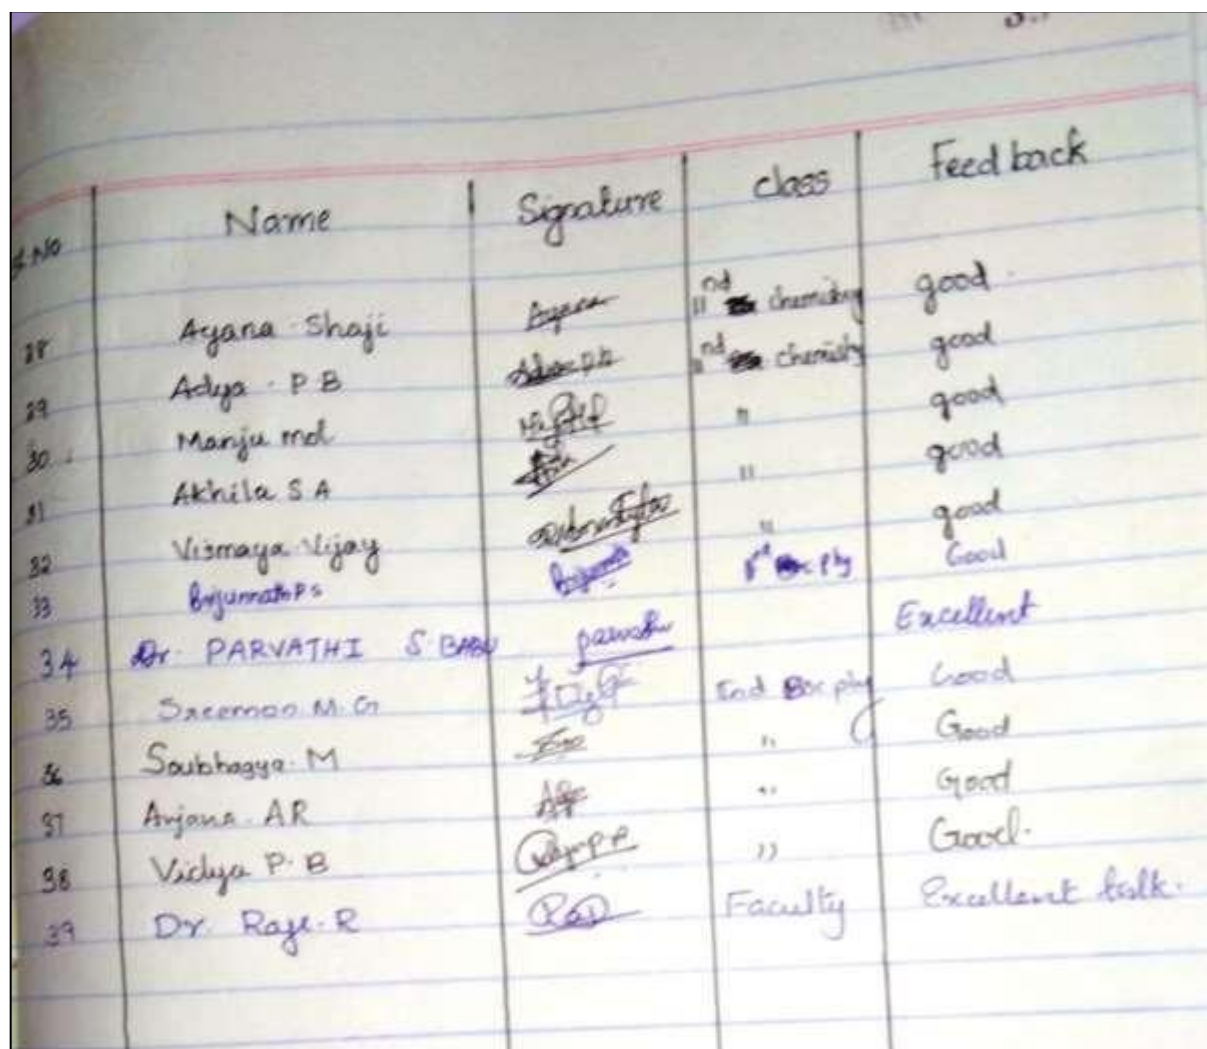 Name Signature class Feed back
S.No
28 Ayana Shaji Ayana IInd chemistry good
29 Adya P B IInd chemistry good
30 Manju mol " good
31 Akhila S A " good
32 Vismaya Vijay " good
33 Good
34 Dr. PARVATHI S BABU Excellent
35 Sreemon M.G IInd Bsc phy Good
36 Soubhagya M " Good
37 Anjana AR " Good
38 Vidya P. B " Good.
39 Dr. Raji. R Faculty Excellent talk.